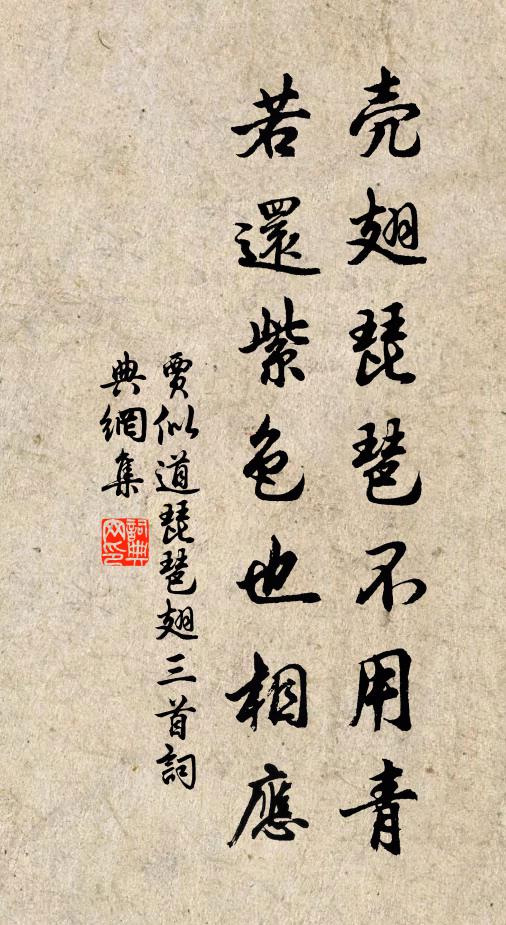 壳翅琵琶不用青
若還紫色也相應
賈似道琵琶翅三首詞
典網集
詞典網印